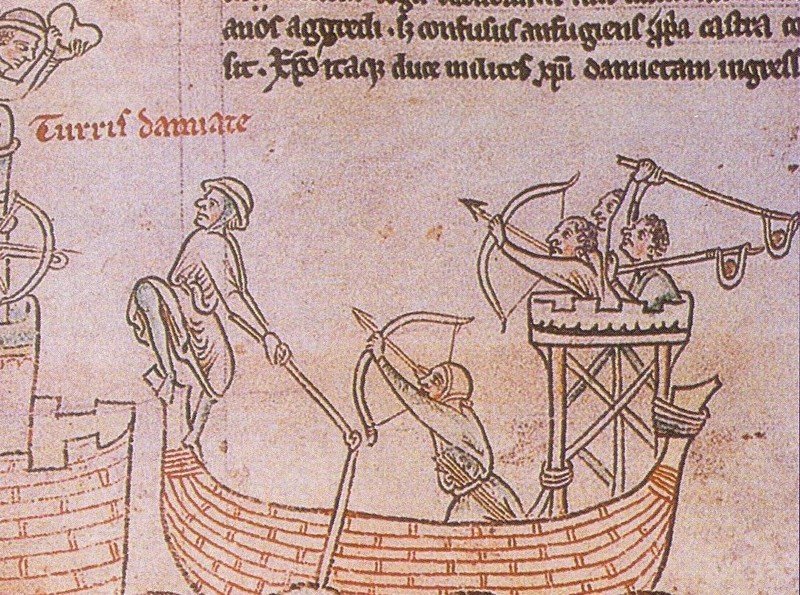 anios aggredi . sz confusus aufugiens ppa castra
sit . Xpo itaqz duce milites xpi damietam ingress
Turris damiate